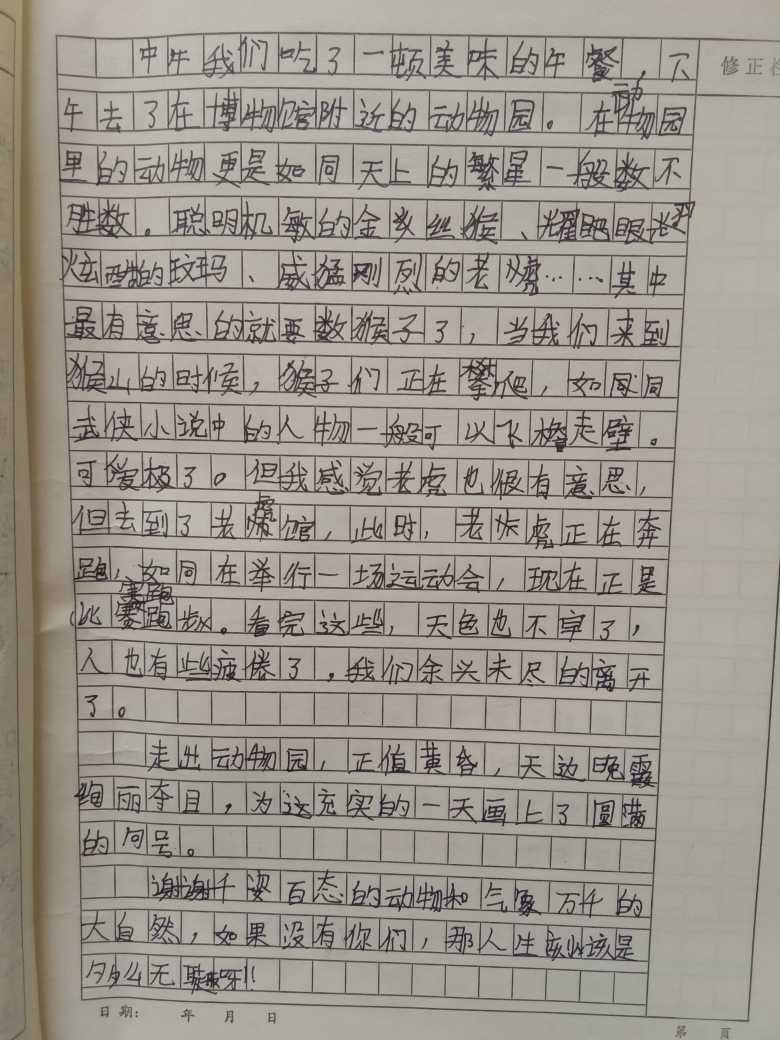 中午我们吃了一顿美味的午餐,下
修正栏
午去了在博物馆附近的动物园。在动物园
里的动物更是如同天上的繁星一般数不
胜数。聪明机敏的金丝猴、耀眼
炫酷的玟玛、威猛刚烈的老虎……其中
最有意思的就要数猴子了,当我们来到
猴山的时候,猴子们正在攀爬,如同同
武侠小说中的人物一般可以飞檐走壁。
可爱极了。但我感觉老虎也很有意思,
但去到了老虎馆,此时,老虎正在奔
跑,如同在举行一场运动会,现在正是
比赛跑步。看完这些,天色也不早了,
人也有些疲倦了,我们余兴未尽的离开
了。
走出动物园,正值黄昏,天边晚霞
绚丽夺目,为这充实的一天画上了圆满
的句号。
谢谢千姿百态的动物和气象万千的
大自然,如果没有你们,那人生应该是
多么无趣呀!!
日期: 年 月 日
第 页